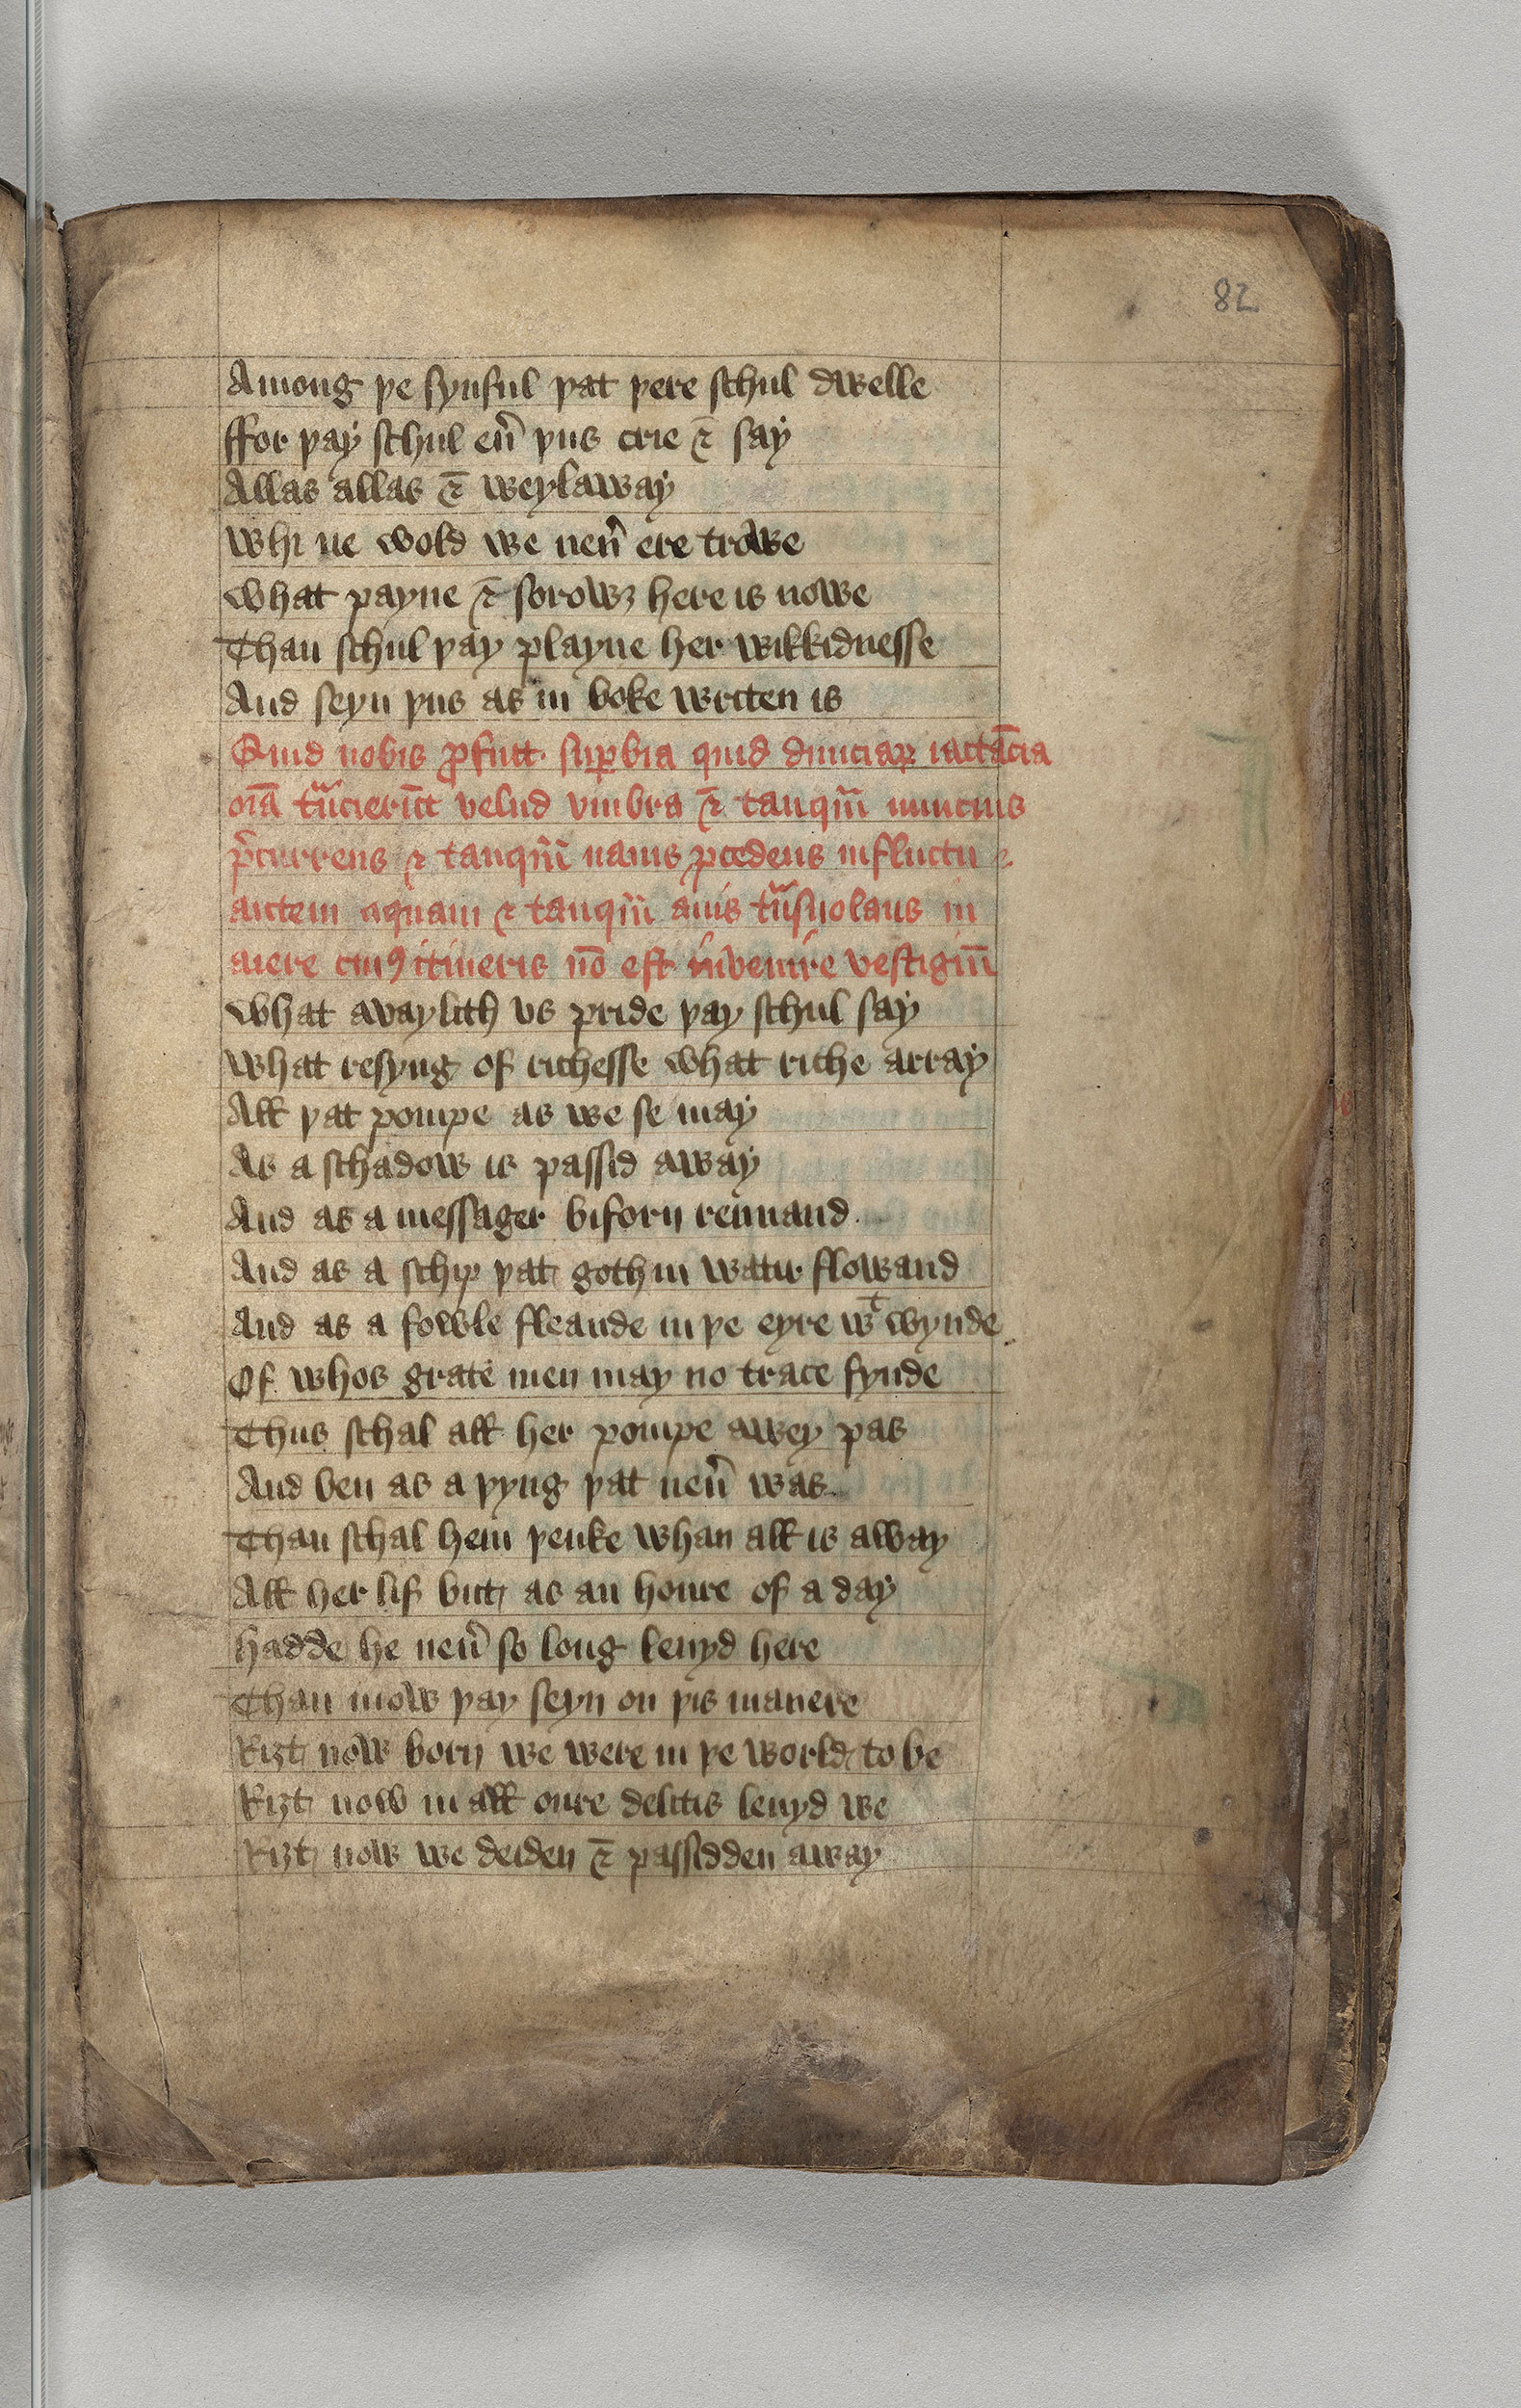 82
Among þe synful þat þere schul dwelle
ffor þay schul eũ þus crie ⁊ say
Allas allas ⁊ weylaway
Whi ne wold we neũ ere trowe
What payne ⁊ sorowȝ here is nowe
Than schul þay playne her wikkidnesse
And seyn þus as in boke writen is
Quid nobis ꝓfuit suꝑbia quid diuiciaꝝ iactãcia
oĩa tͣnsierũt velud vmbra ⁊ tanqͣm nuncius
p̃currens ⁊ tanqͣm nauis ꝓcedens in fluctu
antem aquam ⁊ tanqͣm auis tͣnsuolans in
aiere cuiꝰ itineris nõ est invenire vestigiũ
What avaylith vs pride þay schul say
What resyng of richesse what riche array
All þat pompe as we se may
As a schadow is passid away
And as a messager biforn rennand
And as a schip þat goth in watir flowand
And as a fowle fleande in þe eyre wᵗ wynde
Of whos grate men may no trace fynde
Thus schal all her pompe awey pas
And ben as a þyng þat neũ was
Than schal hem þenke whan all is away
All her lif but as an houre of a day
hadde he neũ so long leuyd here
Than mow þay seyn on þis manere
Riȝt now born we were in þe world to be
Riȝt now in all oure delitis leuyd we
Riȝt now we deiden ⁊ passidden away